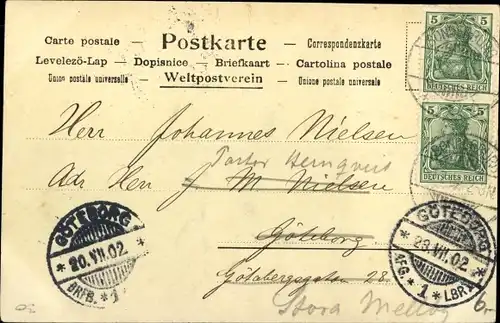 Carte postale — Postkarte — Correspondenzkarte
Levelezö-Lap — Dopisnice — Briefkaart — Cartolina postale
Union postale universelle — Weltpostverein — Unione postale universale
5 5
DEUTSCHES REICH
5 5
DEUTSCHES REICH
Herr Johannes Nielsen
Pastor Hernqvist
Adr Herr J M Nielsen
Göteborg
Götabergsgatan 28.
Stora Mellby
GÖTEBORG
* 20.VII.02 *
BRFB. * 1
GÖTEBORG
* 23.VII.02 *
AFG. * 1 * LBR.
6.-